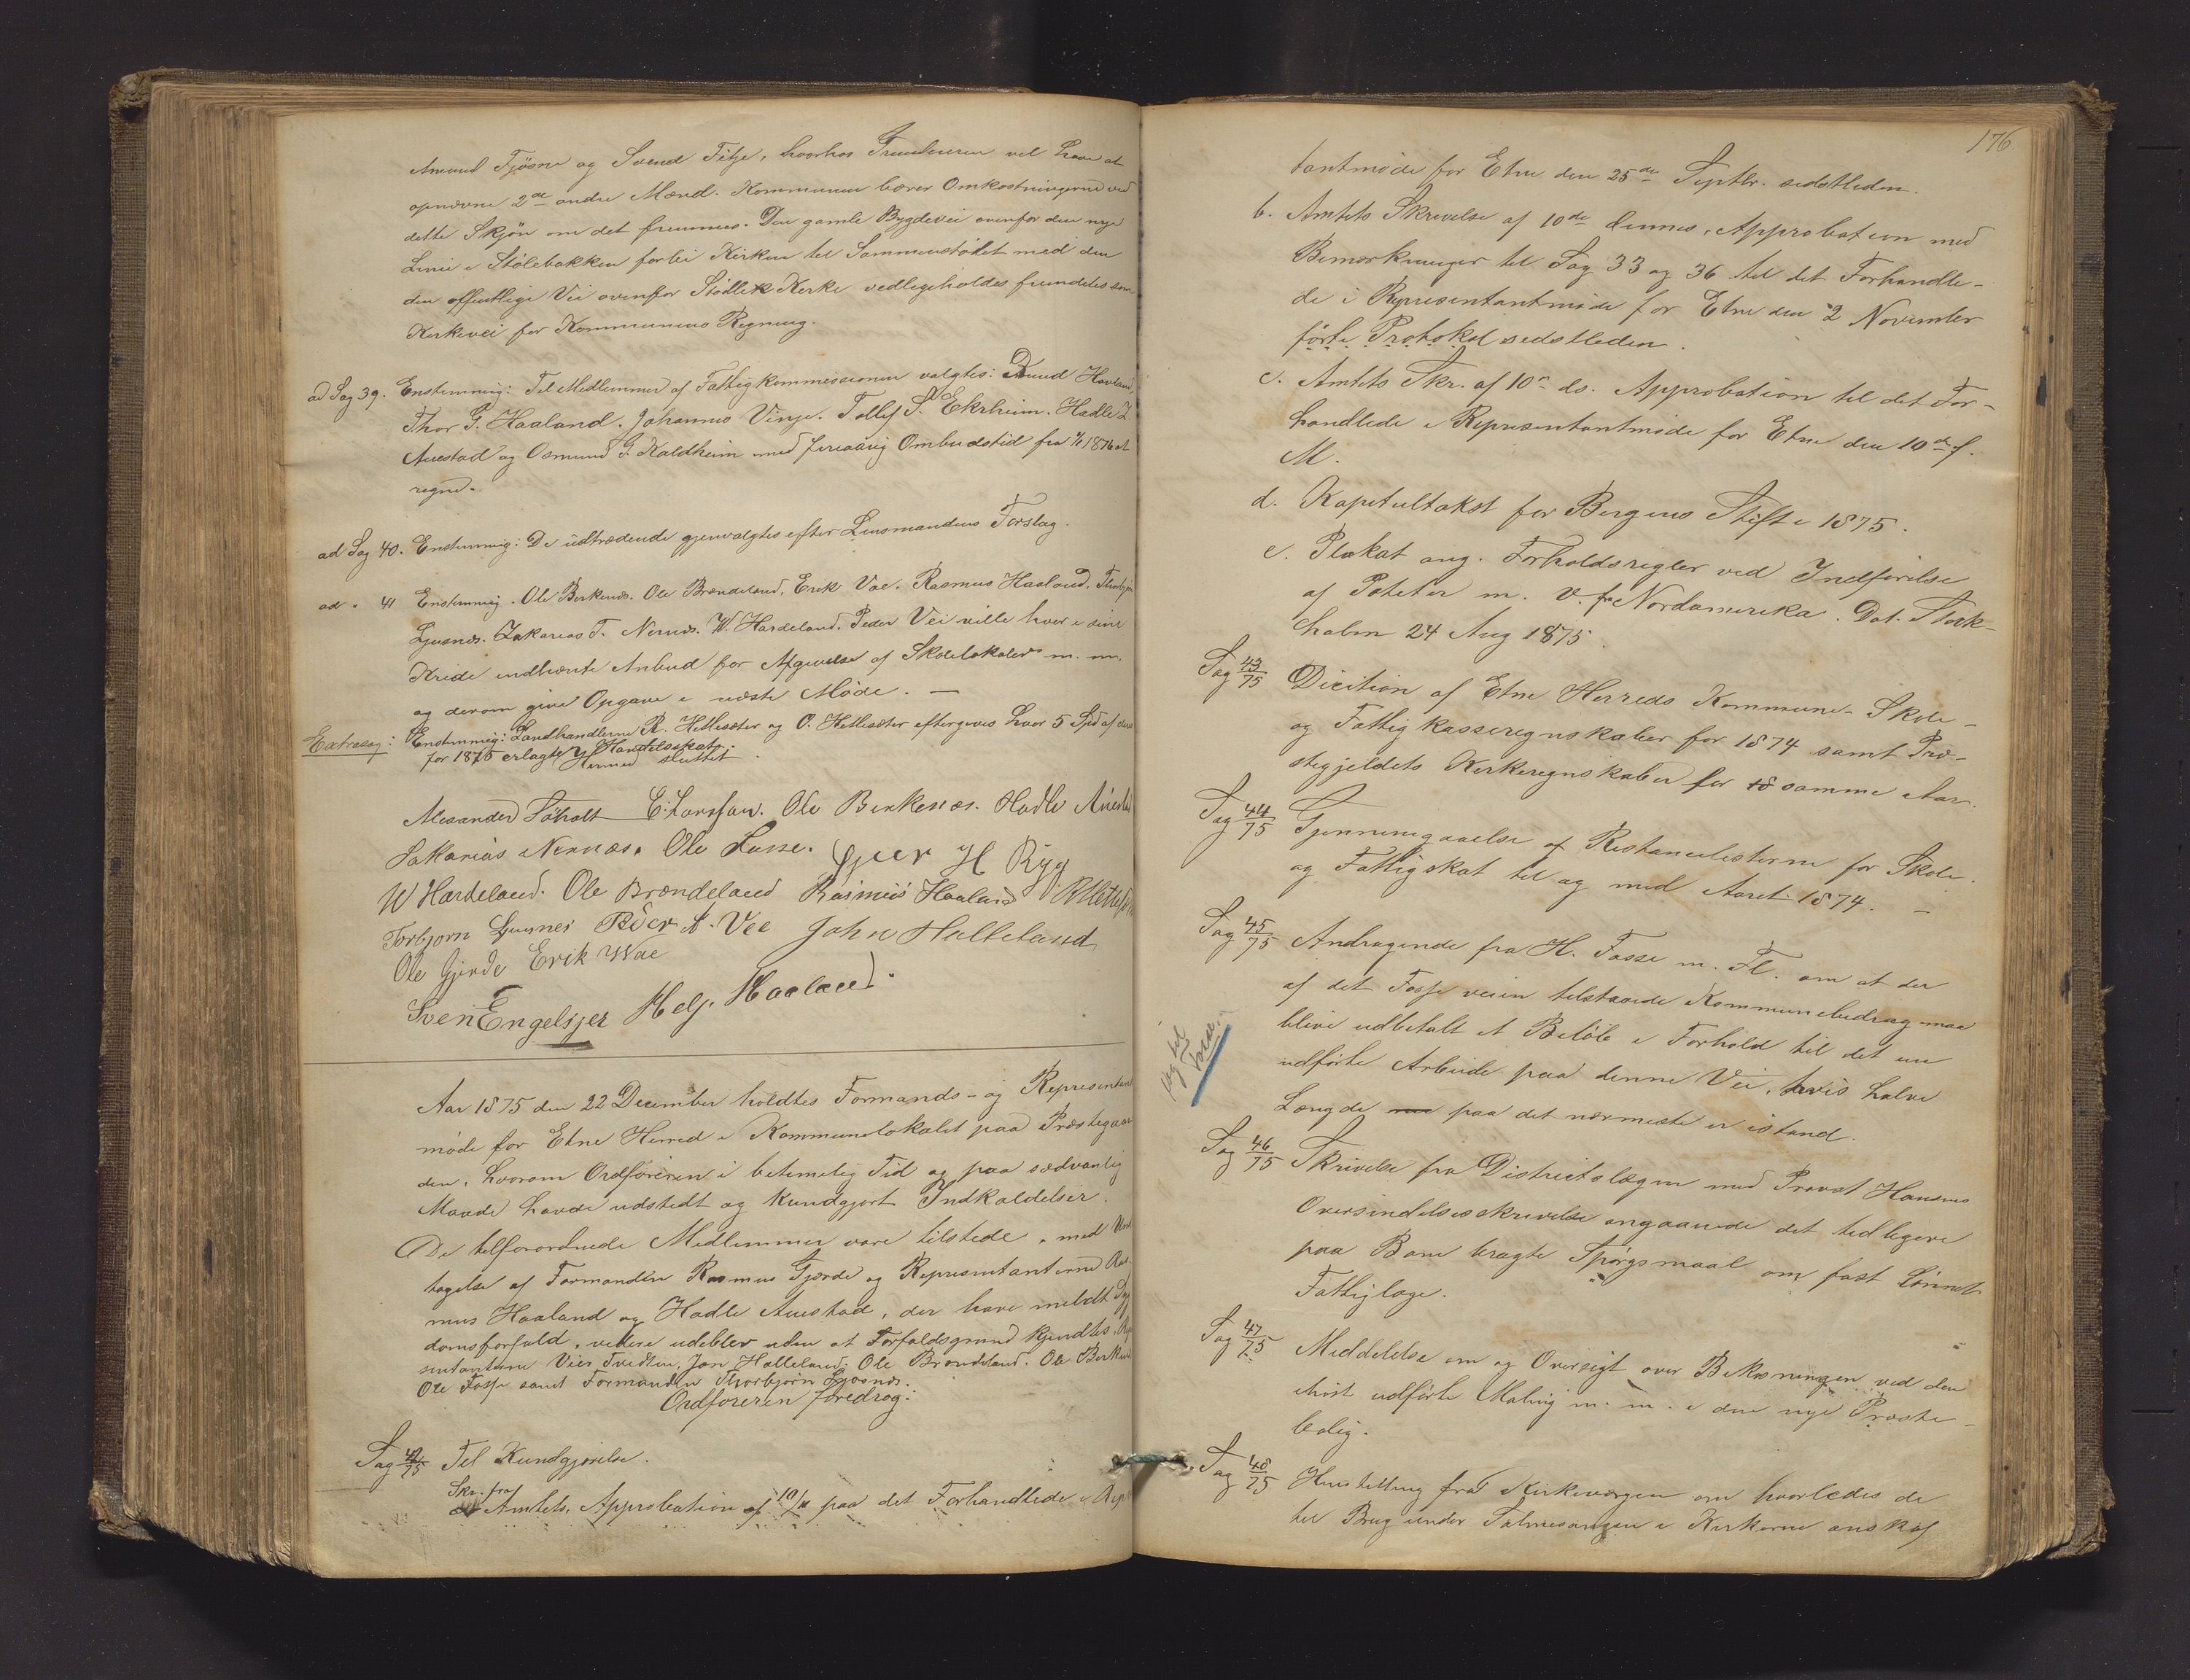 Amund Tjösne og Svend Fitje, hvorhos Grundeieren vil have at
opnævne 2de andre Mænd. Kommunen bærer Omkostningerne ved
dette Skjön om det fremmes. Den gamle Bygdevei ovenfor den nye
Linie i Stölebakken forbi Kirken til Sammenstödet med den
den offentlige Vei ovenfor Stödle Kirke vedligeholdes fremdeles som
Kirkevei for Kommunens Regning.
ad Sag 39. Enstemmig: Til Medlemmer af Fattigkommissionen valgtes: Knud Havland
Thor G. Haaland. Johannes Vinje. Tollef S. Ekrheim. Hadle L.
Auestad og Osmund G. Kaldheim med fireaarig Ombudstid fra 1/1 1876 at
regne.
ad Sag 40. Enstemmig: De udtrædende gjenvalgtes efter Lensmandens Forslag.
ad " 41 Enstemmig. Ole Birkenes. Ole Brændeland, Erik Vae. Rasmus Haaland. Thorbjön
Ljusnes. Zakarias T. Nernes. W. Hardeland. Peder Vei ville hver i sine
Kredse indhente Anbud for Afgivelse af Skolelokaler m. m.
og derom give Opgave i næste Möde. —
Extrasag: Enstemmig: Landhandlerne R. Hetlesæter og O. Hetlesæter eftergives hver 5 Spd af den
for 1875 erlagte Handelsskat.
Hermed sluttet.
Alexander Söholt E. Larssen. Ole Berkenæs. Hadle Auestad
Sakarias Nernæs. Ole Fosse. Geer H Rÿg
W Hardeland. Ole Brændeland Rasmus Haaland R Hetlesæter
Torbjorn Ljusnes Peder A. Vee John Halleland
Ole Gjerde Erik Wae
Sven Engelsjer Helje Haaland.
Aar 1875 den 22 December holdtes Formands- og Representant
möde for Etne Herred i Kommunelokalet paa Præstegaar
den, hvorom Ordföreren i betimelig Tid og paa sædvanlig
Maade havde udstedt og kundgjort Indkaldelser.
De tilforordnede Medlemmer vare tilstede, med Und
tagelse af Formanden Rasmus Gjærde og Representanterne Ras
mus Haaland og Hadle Auestad, der have meldt Syg
domsforfald, videre udeblev uden at Forfaldsgrund kjendtes, Repr
sentanterne Vier Tvedten, Jon Halleland. Ole Brændeland. Ole Berkenes
Ole Fosse samt Formanden Thorbjörn Ljosnes.
Ordföreren foredrog:
Sag 42/75 Til Kundgjörelse.
Skr. fra
a Amtets, Approbation af 10/11 paa det Forhandlede i Rep
176
tantmöde for Etne den 25de Septbr. sidstleden.
b. Amtets Skrivelse af 10de dennes, Approbation med
Bemærkninger til Sag 33 og 36 til det Forhandle-
de i Representantmöde for Etne den 2 November
förte Protokol sidstleden.
c. Amtets Skr. af 10n ds. Approbation til det For-
handlede i Representantmöde for Etne den 10de f.
M.
d. Kapitultakst for Bergens Stift i 1875.
e. Plakat ang. Forholdsregler ved Indförelse
af Poteter m. V. fra Nordamerika. Dat. Stock-
holm 24 Aug 1875.
Sag 43/75 Dicition af Etne Herreds Kommune- Skole-
og Fattigkasseregnskaber for 1874 samt Præ-
stegjeldets Kirkeregnskaber for samme Aar.
Sag 44/75 Gjennemgaaelse af Restancelisterne for Skole-
og Fattigskat til og med Aaret 1874. —
Sag 45/75 Andragende fra H. Fosse m. Fl. om at der
af det Fosse veien tilstaaede Kommunebidrag maa
blive udbetalt et Belöb i Forhold til det nu
udförte Arbeide paa denne Vei, hvis halve
Længde paa det nærmeste er istand.
Veg til
Fosse.
Sag 46/75 Skrivelse fra Districtslægen med Provst Hansens
Oversendelsesskrivelse angaaende det tidligere
paa Bane bragte Spörgsmaal om fast lönnet
Fattiglæge.
Sag 47/75 Meddelelse om og Oversigt over Bekosningen ved den
ihöst udförte Maling m. m. i den nye Præste-
bolig.
Sag 48/75 Henstilling fra Kirkeværgen om hvorledes de
til Brug under Salmesangen i Kirkerne anskaf